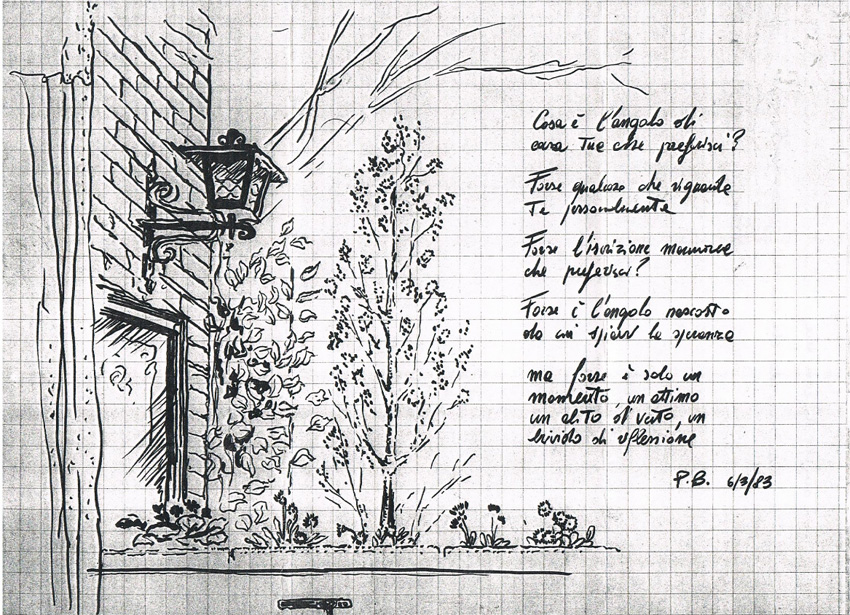 Cosa è l'angolo di
casa tua che preferisci?
Forse qualcosa che riguarda
Te personalmente
Forse l'iscrizione marmorea
che preferisci?
Forse è l'angolo nascosto
da cui spiav la speranza
ma forse è solo un
momento, un attimo
un alito di vento, un
brivido di riflessione
P.B. 6/3/83